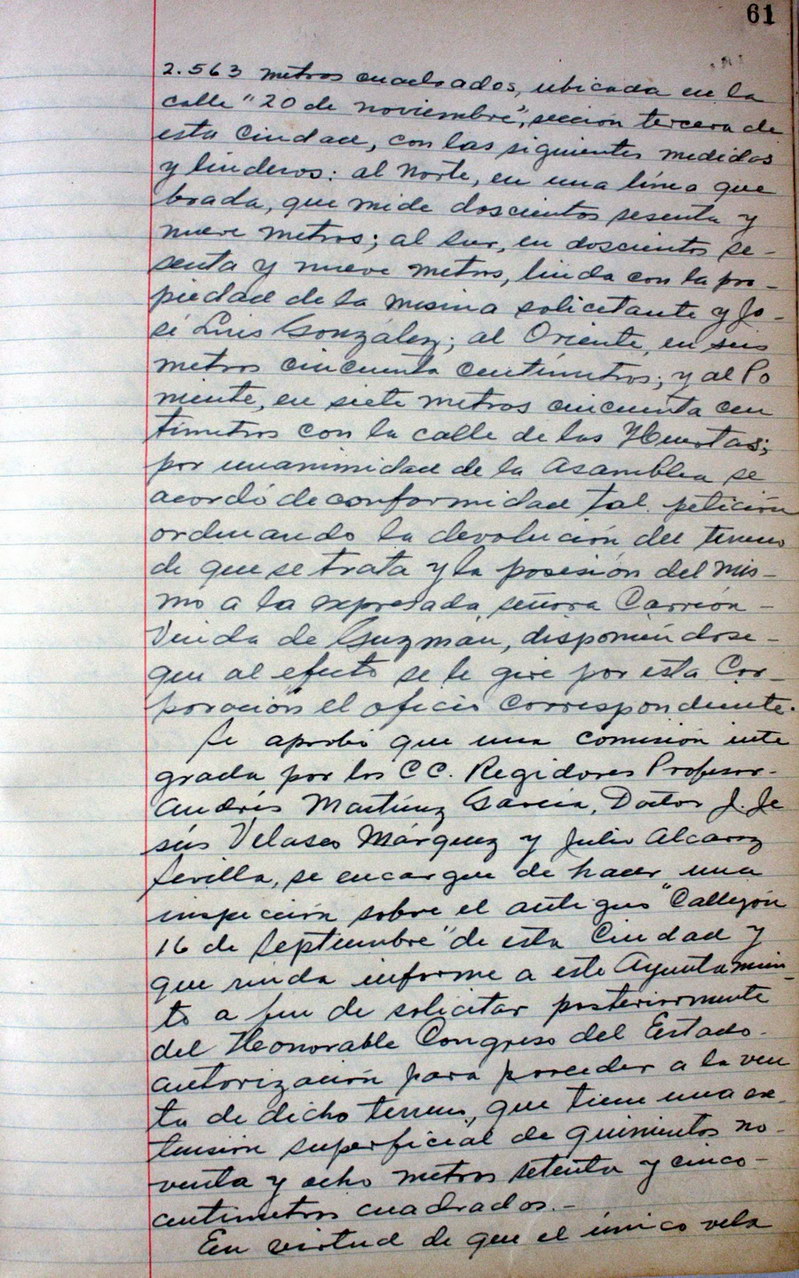 61
2.563 metros cuadrados, ubicada en la
calle "20 de noviembre", sección tercera de
esta Ciudad, con las siguientes medidas
y linderos: al norte, en una línea que
brada, que mide doscientos sesenta y
nueve metros; al Sur, en doscientos se-
senta y nueve metros, linda con la pro-
piedad de la misma solicitante y Jo-
sé Luis González; al Oriente, en seis
metros cincuenta centímetros; y al Po
niente, en siete metros cincuenta cen
tímetros con la calle de las Huertas;
por unanimidad de la Asamblea se
acordó de conformidad tal petición
ordenando la devolución del terreno
de que se trata y la posesión del mis-
mo a la expresada señora Carrión-
Viuda de Guzmán, disponiéndose-
que al efecto se le gire por esta Cor-
poración el oficio correspondiente.
Se aprobó que una comisión inte
grada por los CC. Regidores Profesor-
Andrés Martínez García, Doctor J. Je
sús Velasco Márquez y Julio Alcaraz
Sevilla, se encargue de hacer una
inspección sobre el antiguo "Callejón
16 de Septiembre" de esta Ciudad y
que rinda informe a este Ayuntamien-
to a fin de solicitar posteriormente
del Honorable Congreso del Estado-
autorización para proceder a la ven
ta de dicho terreno, que tiene una ex-
tensión superficial de quinientos no-
venta y ocho metros setenta y cinco-
centímetros cuadrados.-
En virtud de que el único vela